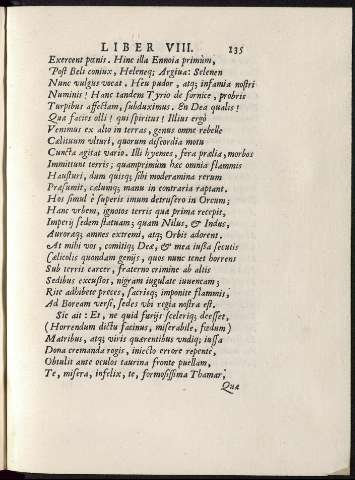 LIBER VIII. 235
Exercent pœnis. Hinc illa Ennoia primùm,
Post Beli coniux, Heleneq; Argiua: Selenen
Nunc vulgus vocat. Heu pudor, atq; infamia nostri
Numinis! Hanc tandem Tyrio de fornice, probris
Turpibus affectam, subduximus. En Dea qualis!
Qua facies olli! qui spiritus! Illius ergò
Venimus ex alto in terras, genus omne rebelle
Cælituum vlturi, quorum discordia motu
Cuncta agitat vario. Illi hyemes, fera prælia, morbos
Immittunt terris; quamprimum hæc omnia flammis
Hausturi, dum quisq; sibi moderamina rerum
Præsumit, cælumq; manu in contraria raptant.
Hos simul è superis imum detrusero in Orcum;
Hanc vrbem, ignotos terris qua prima recepit,
Imperij sedem statuam; quam Nilus, & Indus,
Auroraq; amnes extremi, atq; Orbis adorent.
At mihi vos, comitiq; Deæ, & mea iussa secutis
Cælicolis quondam genijs, quos nunc tenet horrens
Sub terris carcer, fraterno crimine ab altis
Sedibus excussos, nigram iugulate iuuencam;
Rite adhibete preces, sacrisq; imponite flammis,
Ad Boream versi, sedes vbi regia nostra est.
Sic ait: Et, ne quid furijs sceleriq; deesset,
(Horrendum dictu facinus, miserabile, fœdum)
Matribus, atq; viris quærentibus vndiq; iussa
Dona cremanda rogis, iniecto errore repentè,
Obtulit ante oculos taurina fronte puellam,
Te, misera, infelix, te, formosissima Thamar;
Quæ